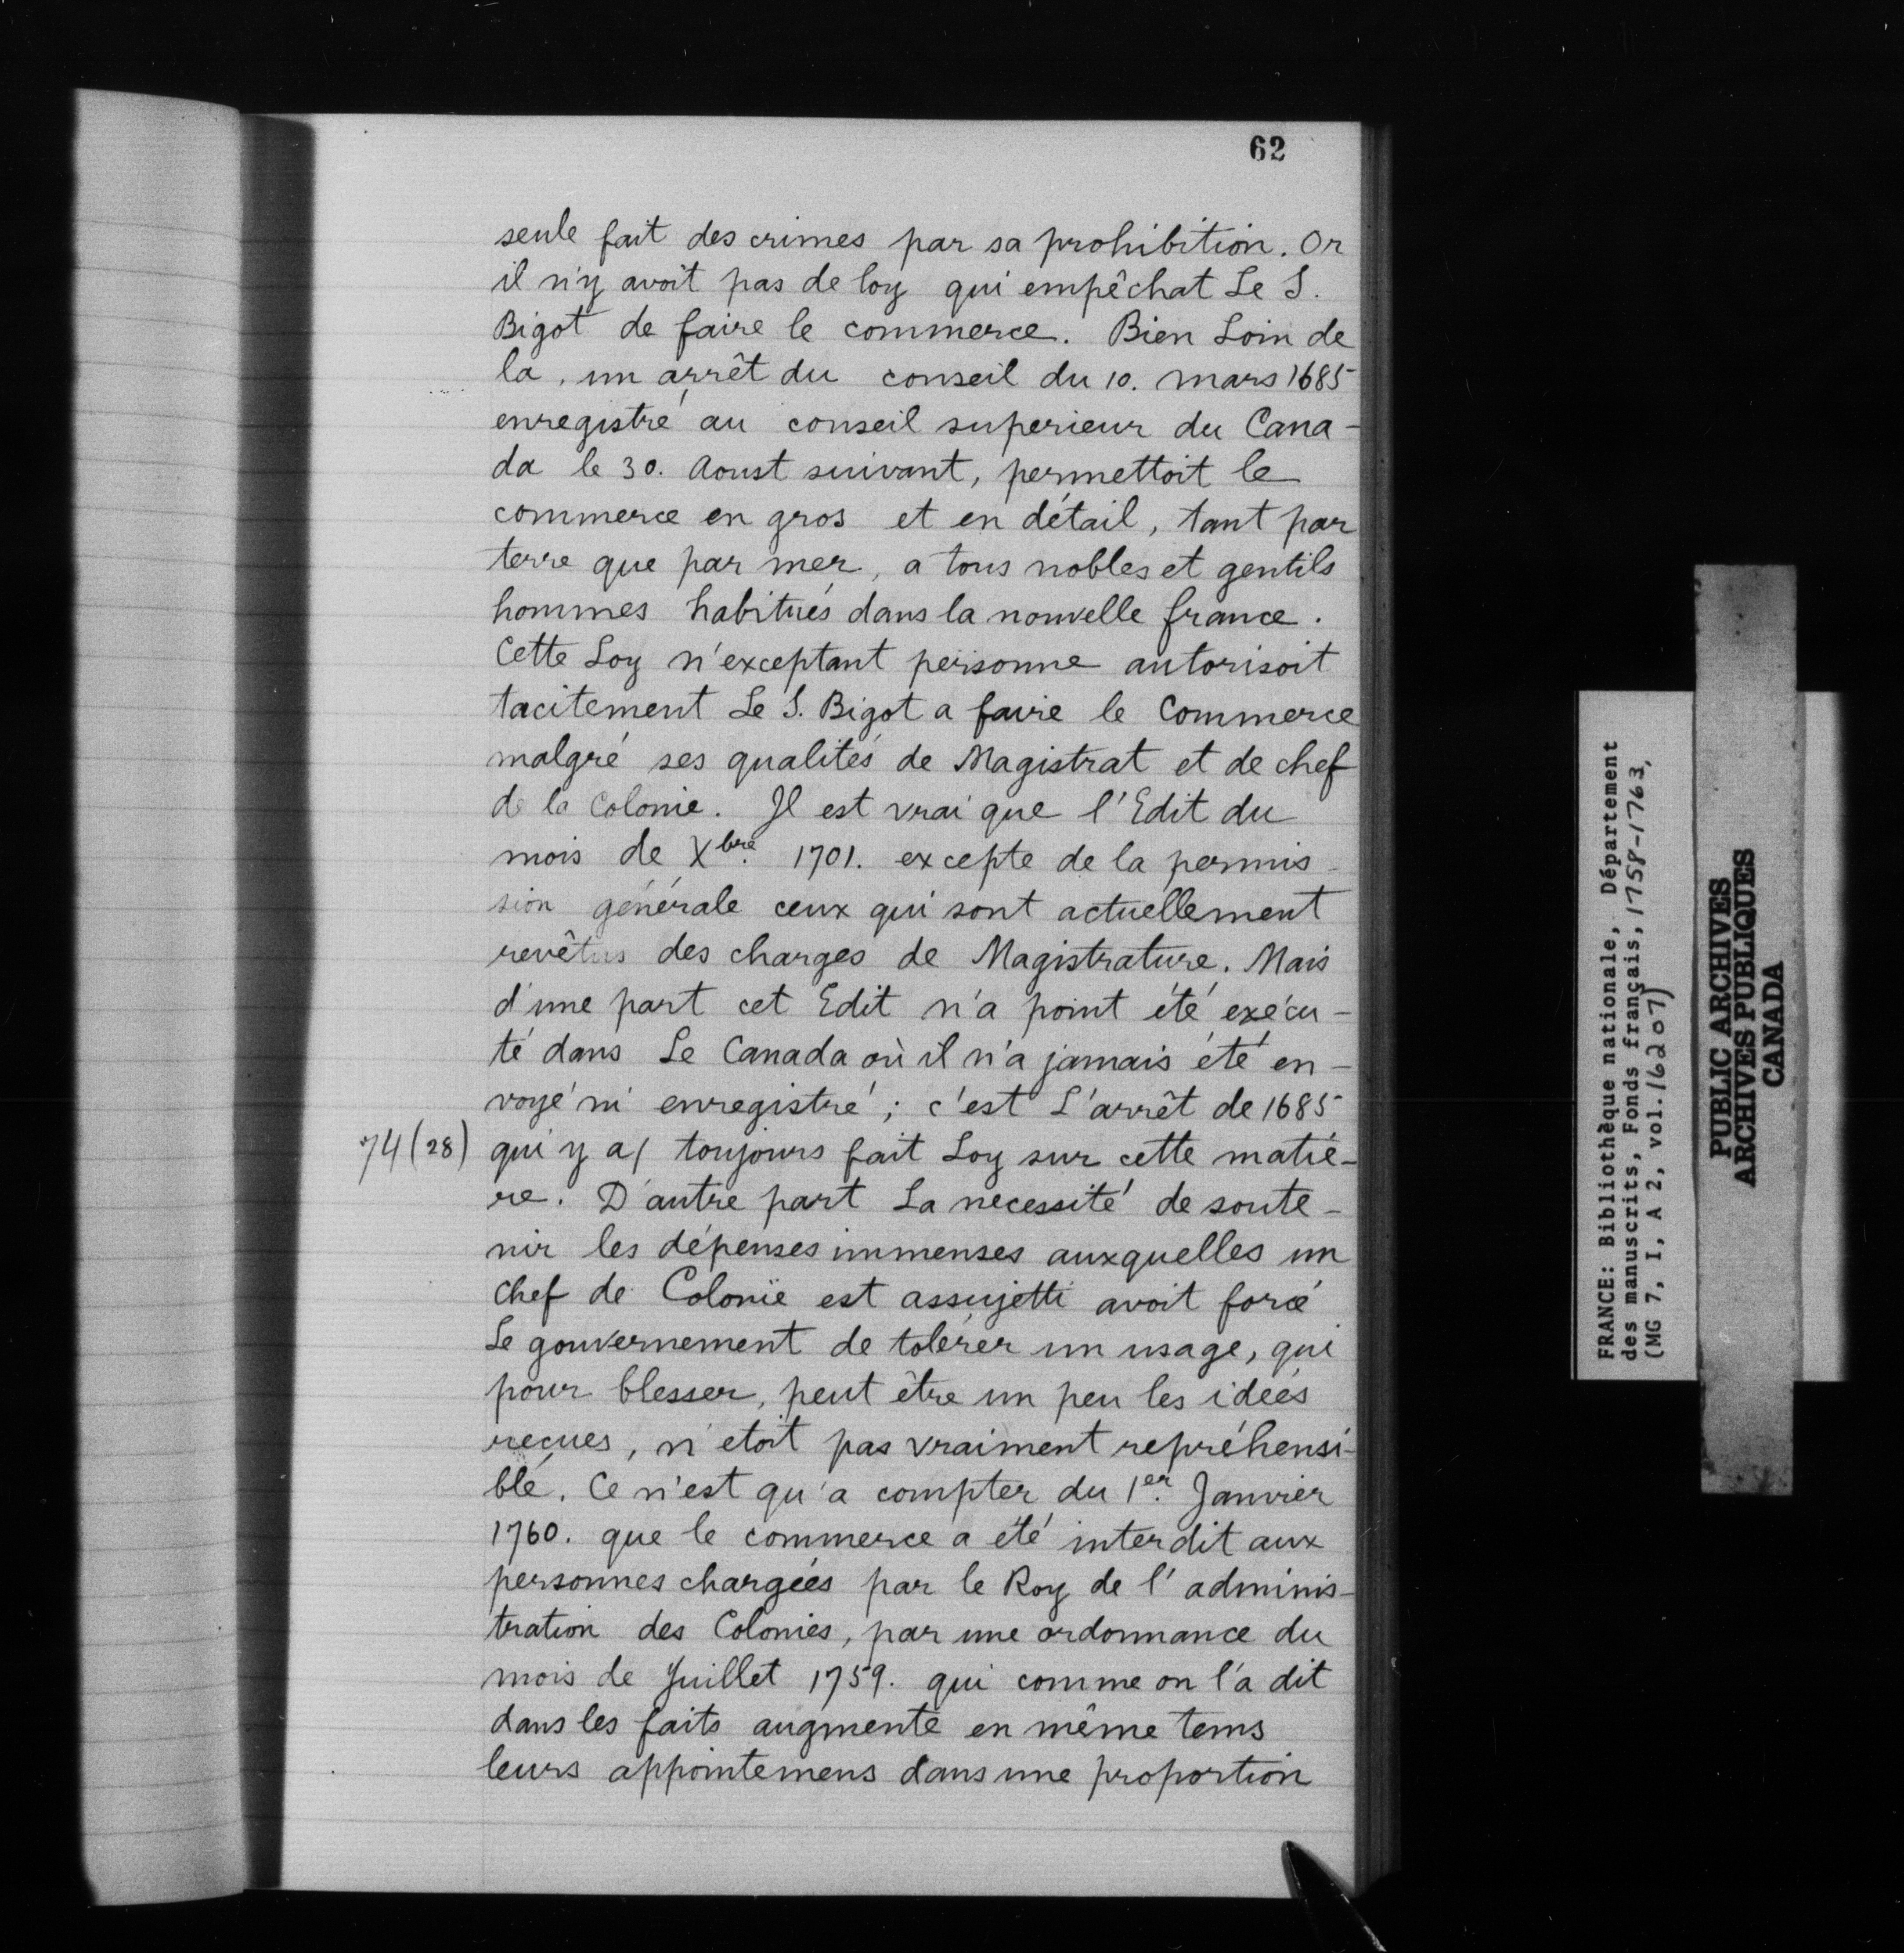 62
seule fait des crimes par sa prohibition. Or
il n'y avoit pas de loy qui empêchat Le S.
Bigot de faire le commerce. Bien Loin de
la, un arrêt du conseil du 10. mars 1685
enregistré au conseil superieur du Cana-
da le 30. Aoust suivant, permettoit le
commerce en gros et en détail, tant par
terre que par mer, a tous nobles et gentils
hommes habitués dans la nouvelle france.
Cette Loy n'exceptant personne autorisoit
tacitement Le S. Bigot a faire le Commerce
malgré ses qualités de Magistrat et de chef
de la Colonie. Il est vrai que l'Edit du
mois de Xbre. 1701. excepte de la permis-
sion générale ceux qui sont actuellement
revêtus des charges de Magistrature. Mais
d'une part cet Edit n'a point été exécu-
té dans Le Canada où il n'a jamais été en-
voyé ni enregistré; c'est L'arrêt de 1685
74 (28) qui y a/ toujours fait Loy sur cette matié-
re. D'autre part La necessité de soute-
nir les dépenses immenses auxquelles un
chef de Colonie est assujetti avoit forcé
Le gouvernement de tolérer un usage, qui
pour blesser, peut être un peu les idées
reçues, n'etoit pas vraiment repréhensi-
blé. Ce n'est qu'a compter du 1er. Janvier
1760. que le commerce a été interdit aux
personnes chargées par le Roy de l'adminis-
tration des Colonies, par une ordonnance du
mois de Juillet 1759. qui comme on l'a dit
dans les faits augmente en même tems
leurs appointemens dans une proportion
FRANCE: Bibliothèque nationale, Département
des manuscrits, Fonds français, 1758-1763,
(MG 7, I, A 2, vol. 16207)
PUBLIC ARCHIVES
ARCHIVES PUBLIQUES
CANADA